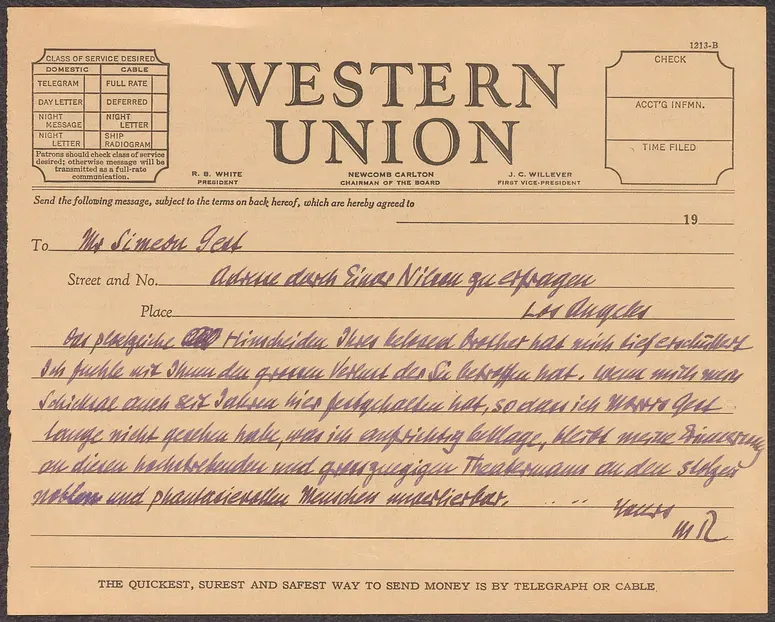 1213-B
CLASS OF SERVICE DESIRED
DOMESTIC CABLE
TELEGRAM FULL RATE
DAY LETTER DEFERRED
NIGHT MESSAGE NIGHT LETTER
NIGHT LETTER SHIP RADIOGRAM
Patrons should check class of service
desired; otherwise message will be
transmitted as a full-rate
communication.
WESTERN
UNION
R. B. WHITE
PRESIDENT
NEWCOMB CARLTON
CHAIRMAN OF THE BOARD
J. C. WILLEVER
FIRST VICE-PRESIDENT
CHECK
ACCT'G INFMN.
TIME FILED
Send the following message, subject to the terms on back hereof, which are hereby agreed to
19
To Mr Simeon Gest
Street and No. Adresse durch Einar Nilson zu erfragen
Place Los Angeles
Das ploetzliche Hinscheiden Ihres beloved Brother hat mich tief erschüttert
Ich fuehle mit Ihnen den grossen Verlust der Sie betroffen hat. Wenn mich mein
Schicksal auch seit Jahren hier festgehalten hat, so dass ich Morris Gest
lange nicht gesehen habe, was ich aufrichtig beklage, bleibt meine Erinnerung
an diesen hochstrebenden und grosszuegigen Theatermann an den stolzen
noblen und phantasievollen Menschen unverlierbar.
Yours
MR
THE QUICKEST, SUREST AND SAFEST WAY TO SEND MONEY IS BY TELEGRAPH OR CABLE